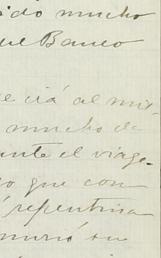 ido mucho
ue Banco
e irá al mis
mucho de
ante el viage
o que con
repentina
murió su